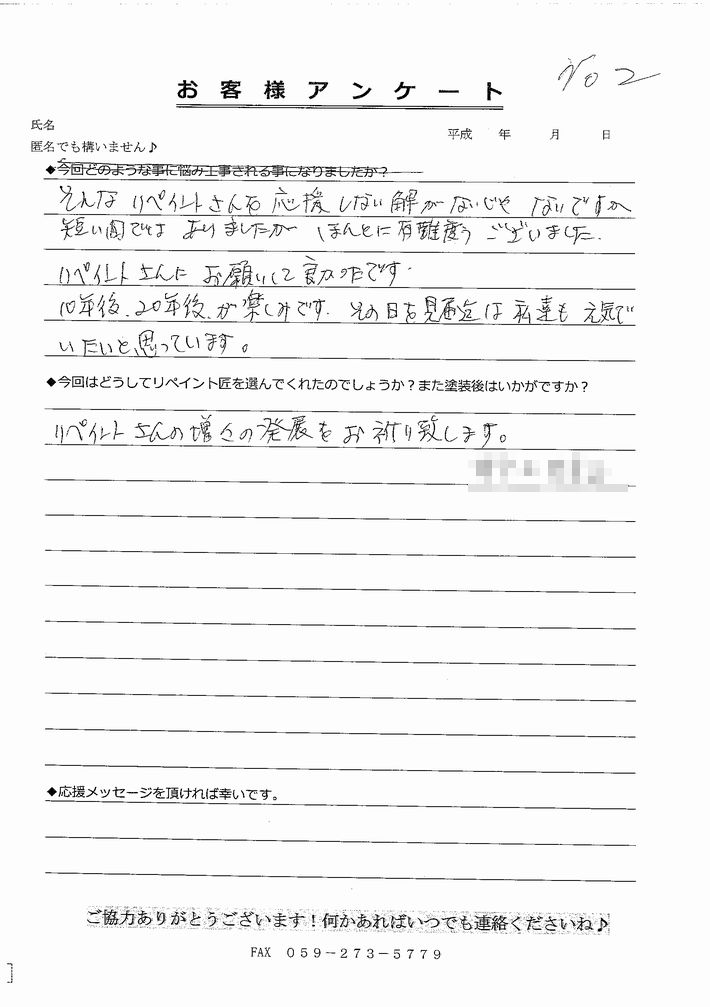 お客様アンケート
No 2
氏名
匿名でも構いません♪
平成 年 月 日
◆今回どのような事に悩み工事される事になりましたか?
そんな リペイントさんを 応援しない解がないじゃ ないですか
短い間では ありましたが ほんとに有難度う ございました.
リペイントさんに お願いして 良かったです.
10年後、20年後、が楽しみです. その日を見る迄は 私達も 元気で
いたいと思っています。
◆今回はどうしてリペイント匠を選んでくれたのでしょうか?また塗装後はいかがですか?
リペイントさんの増々の発展をお祈り致します。
◆応援メッセージを頂ければ幸いです。
ご協力ありがとうございます!何かあればいつでも連絡くださいね♪
FAX 059-273-5779